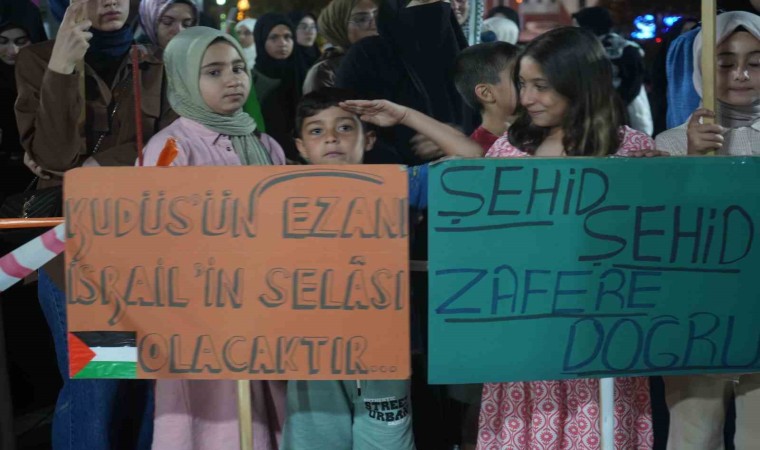 KUDÜS'ÜN EZANI
İSRAİL'İN SELÂSI
OLACAKTIR...
ŞEHİD ŞEHİD
ZAFERE
DOĞRU
STREET
URBAN